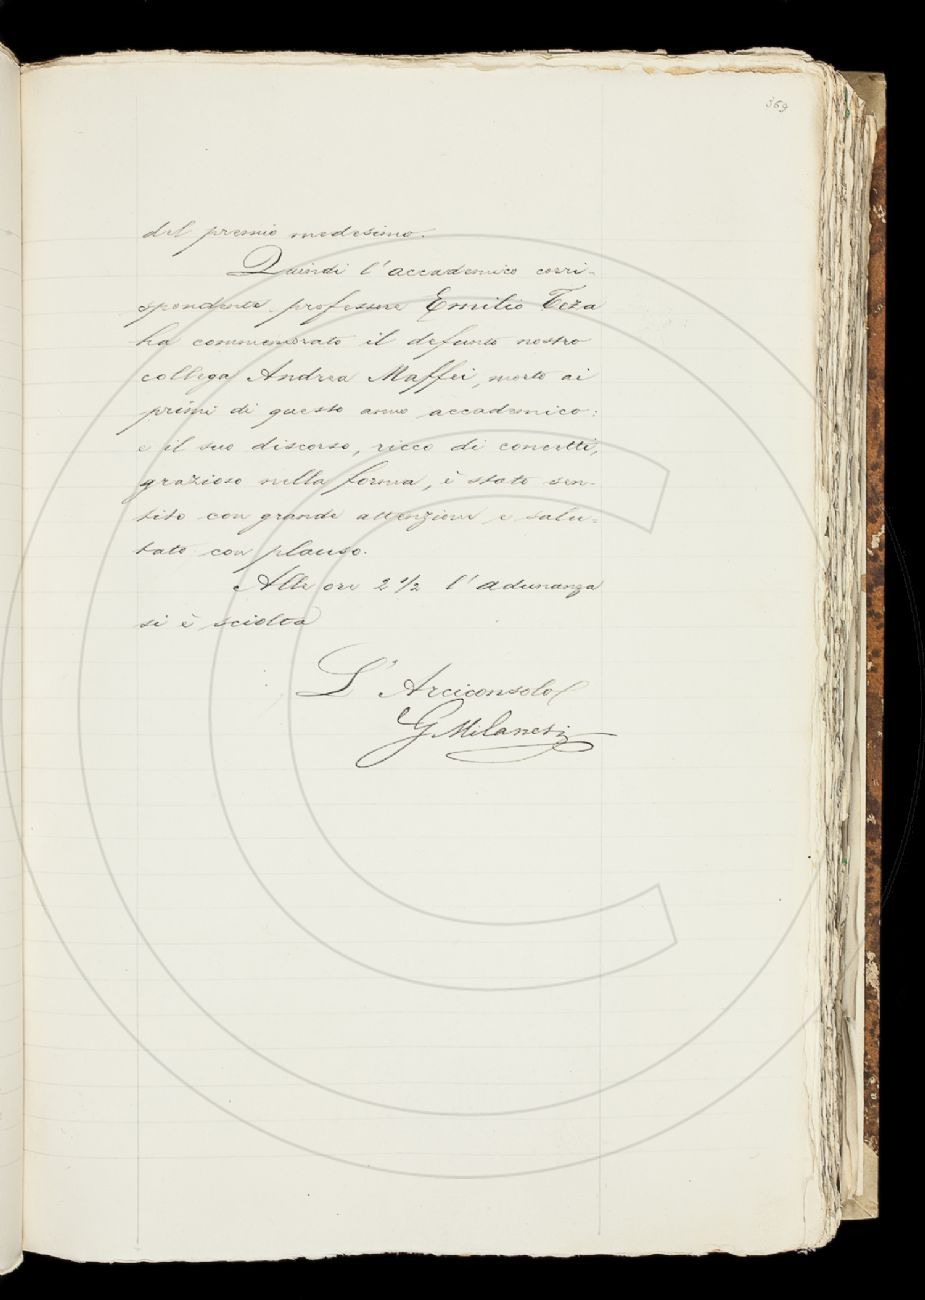 369
del premio medesimo.
Quindi l'accademico corri-
spondente professore Emilio Teza
ha commemorato il defunto nostro
collega Andrea Maffei, morto ai
primi di questo anno accademico:
e il suo discorso, ricco di concetti,
grazioso nella forma, è stato sen-
tito con grande attenzione e salu-
tato con plauso.
Alle ore 2 1/2 l'adunanza
si è sciolta
L'Arciconsolo
G Milanesi